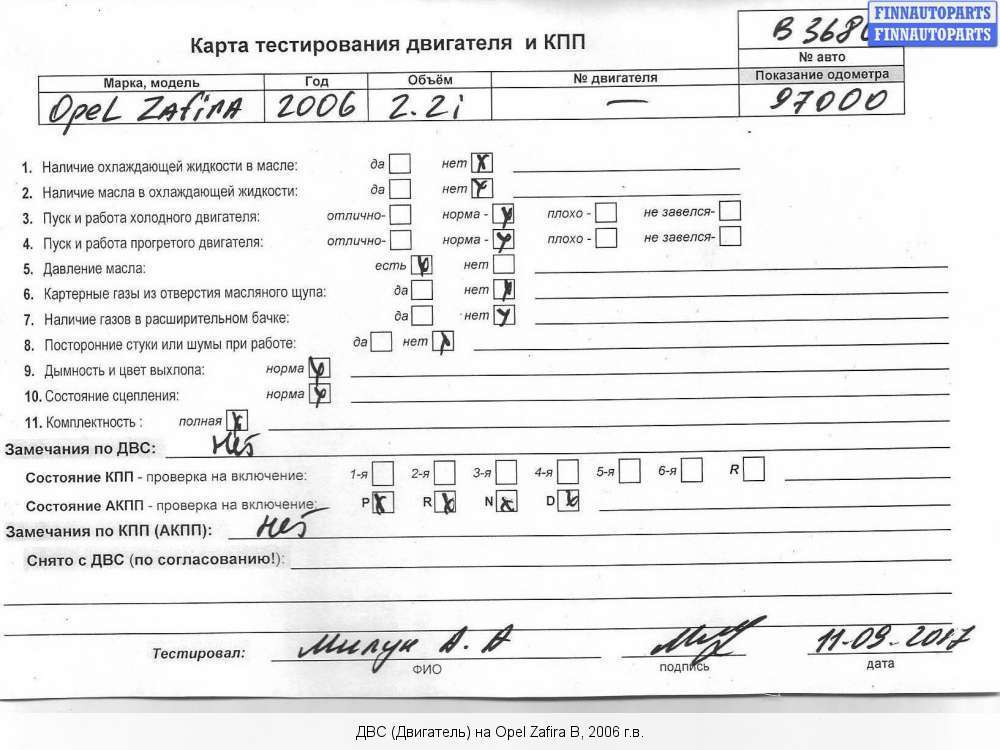 FINNAUTOPARTS
FINNAUTOPARTS
Карта тестирования двигателя и КПП
№ авто
Марка, модель Год Объём № двигателя Показание одометра
Opel Zafira 2006 2.2i — 97000
1. Наличие охлаждающей жидкости в масле: да нет
2. Наличие масла в охлаждающей жидкости: да нет
3. Пуск и работа холодного двигателя: отлично- норма - плохо - не завелся-
4. Пуск и работа прогретого двигателя: отлично- норма - плохо - не завелся-
5. Давление масла: есть нет
6. Картерные газы из отверстия масляного щупа: да нет
7. Наличие газов в расширительном бачке: да нет
8. Посторонние стуки или шумы при работе: да нет
9. Дымность и цвет выхлопа: норма
10. Состояние сцепления: норма
11. Комплектность : полная
Замечания по ДВС: Нет
Состояние КПП - проверка на включение: 1-я 2-я 3-я 4-я 5-я 6-я R
Состояние АКПП - проверка на включение: P R N D
Замечания по КПП (АКПП): Нет
Снято с ДВС (по согласованию!):
Тестировал: Милук А. А 11-09-2017
ФИО подпись дата
ДВС (Двигатель) на Opel Zafira B, 2006 г.в.